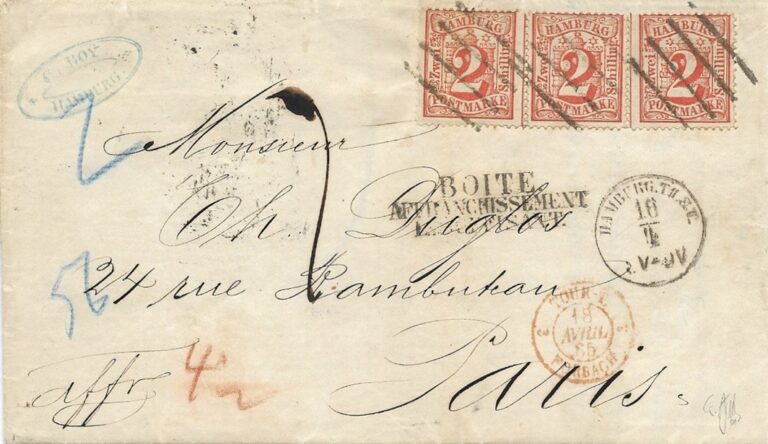 HAMBURG
Zwei 2 Schilling
POSTMARKE
HAMBURG
Zwei 2 Schilling
POSTMARKE
HAMBURG
Zwei 2 Schilling
POSTMARKE
BOY
HAMBURG
2
Monsieur
BOITE
AFFRANCHISSEMENT
Th Duglos
HAMBURG. TH.&T.
16
4
56
24 rue Rambuteau
TOUR-T.
18
AVRIL
65
FORBACH
affr
Paris